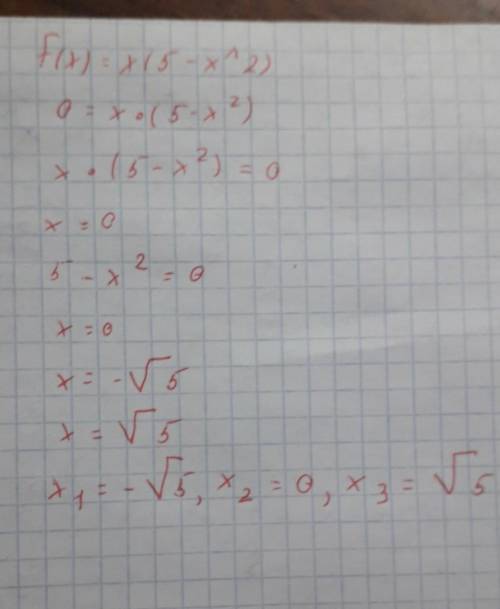 f(x) = x(5 - x^2)
0 = x • (5 - x²)
x • (5 - x²) = 0
x = 0
5 - x² = 0
x = 0
x = -√5
x = √5
x₁ = -√5, x₂ = 0, x₃ = √5